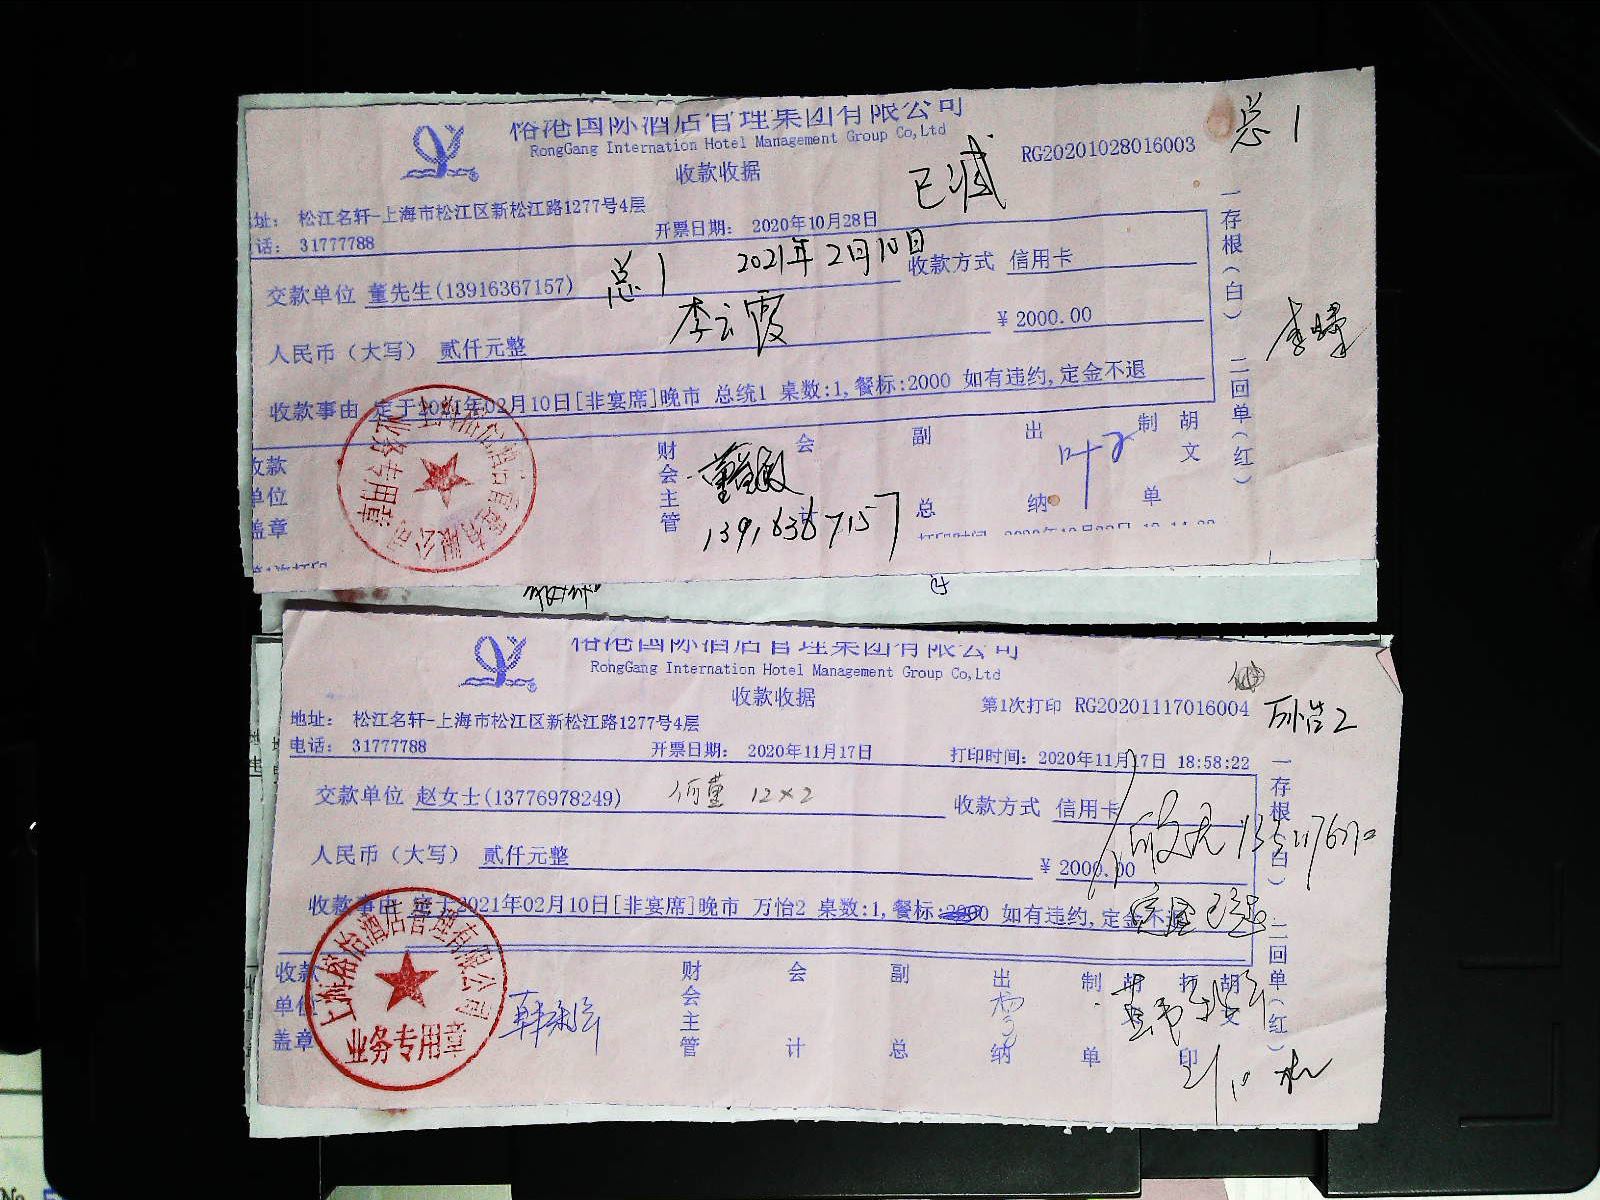 榕港国际酒店管理集团有限公司
RongGang Internation Hotel Management Group Co,Ltd
收款收据
已减
RG20201028016003
总1
址: 松江名轩-上海市松江区新松江路1277号4层
话: 31777788
开票日期: 2020年10月28日
2021年2月10日
交款单位 董先生(13916367157)
总1
收款方式 信用卡
李云霞
人民币(大写) 贰仟元整
¥ 2000.00
收款事由 定于2021年02月10日[非宴席]晚市 总统1 桌数:1,餐标:2000 如有违约,定金不退
一存根(白) 二回单(红)
收款单位盖章
财会主管
会计
副总
出纳
制单
胡文
13916367157
业务专用章
榕港国际酒店管理集团有限公司
RongGang Internation Hotel Management Group Co,Ltd
收款收据
第1次打印 RG20201117016004
万怡2
地址: 松江名轩-上海市松江区新松江路1277号4层
电话: 31777788
开票日期: 2020年11月17日
打印时间: 2020年11月17日 18:58:22
交款单位 赵女士(13776978249)
12×2
收款方式 信用卡
人民币(大写) 贰仟元整
¥ 2000.00
收款事由 定于2021年02月10日[非宴席]晚市 万怡2 桌数:1,餐标: 如有违约,定金不退
一存根(白) 二回单(红)
收款单位盖章
财会主管
会计
副总
出纳
制单
胡文
打印
胡文
上海榕怡酒店管理有限公司
业务专用章